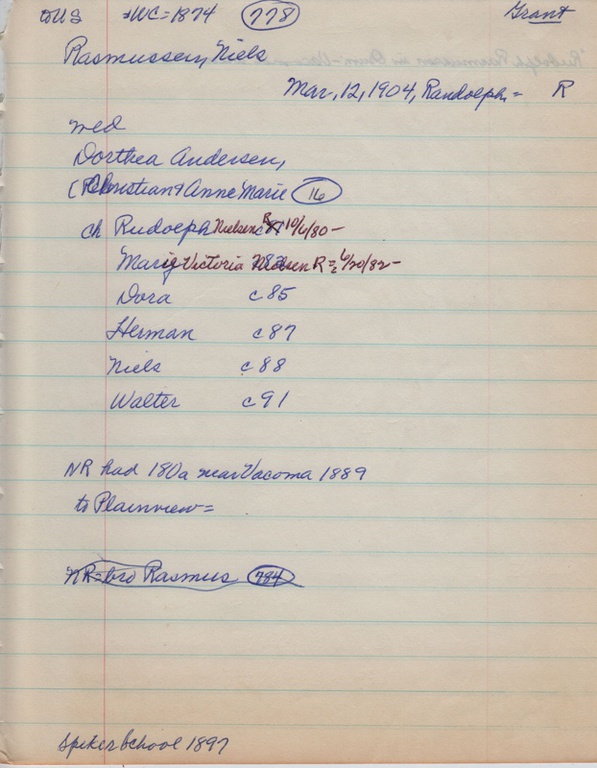 to US =WC=1874 778 Grant
Rasmussen, Niels
Mar, 12, 1904, Randolph = R
wed
Dorthea Andersen,
Christian & Anne Marie 16
ch Rudolph Nielsen R 10/6/80 -
Marie Victoria R = 6/20/82 -
Dora c85
Herman c87
Niels c88
Walter c91
NR had 180a near Vacoma 1889
to Plainview =
NR = bro Rasmus 784
Spiker School 1897